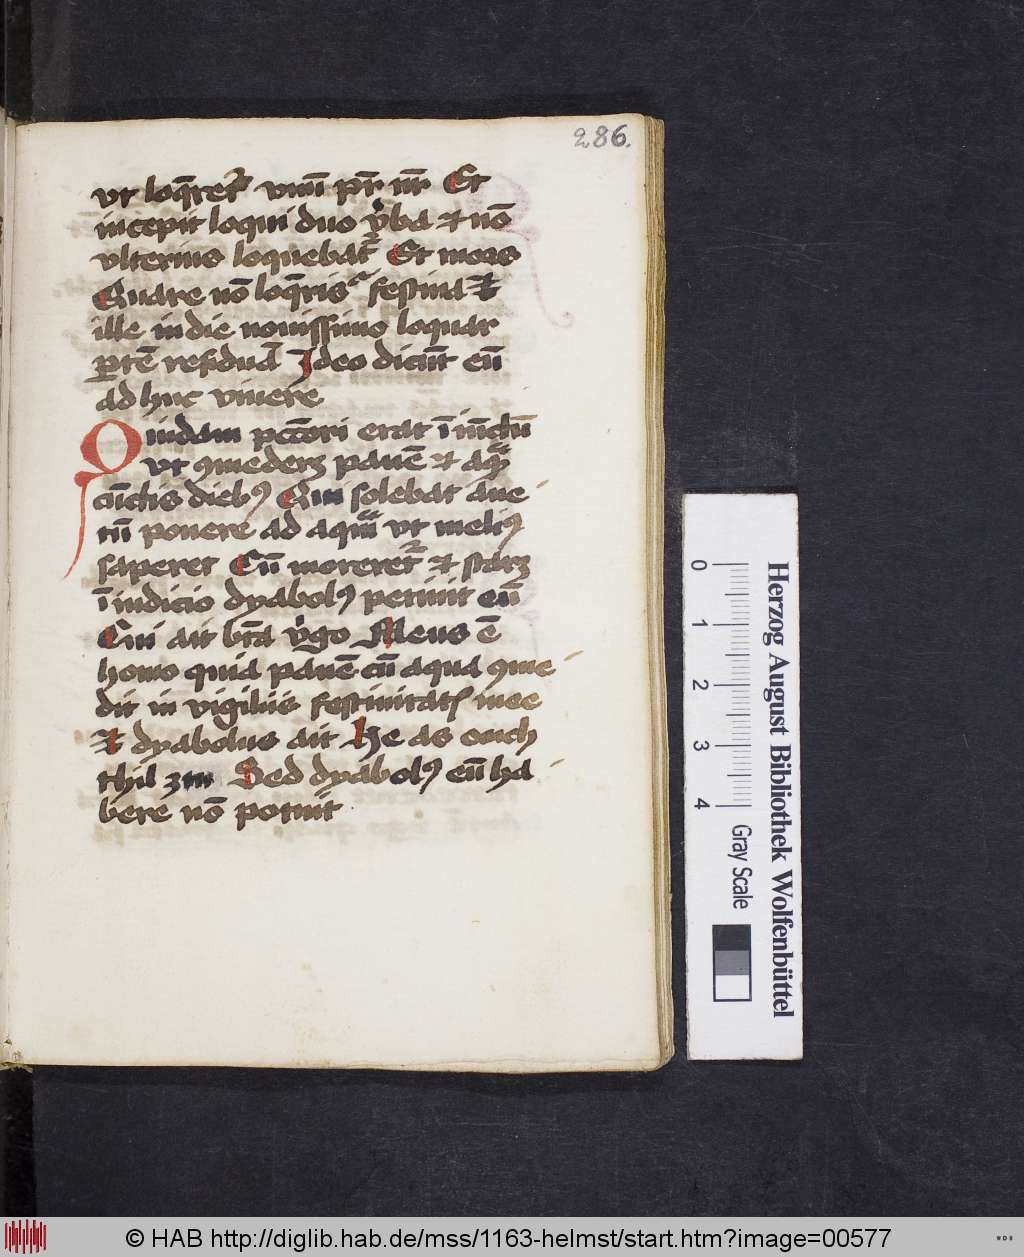 286.
vt loq̄ret᷑ vnū pr̄ nr̄ Et
incepit loqui duo v̓ba et nō
vlterius loquebat᷑ Et moas
Quare nō loq̄ris᷑ festina Et
ille in die nouissimo loquar
ꝑtē residuā Ideo dicūt eū
ad huc viuere
Quidam pctōri erat ī iūctū
vt ꝯmederꝫ panē et aquā
cūctis diebꝯ Qui solebat aue
nū ponere ad aquā vt meliꝯ
saperet Cū moreret᷑ et starꝫ
ī iudicio dyabolꝯ petiuit eū
Cui ait btā v̓go Meus ē
homo quia panē cū aqua ꝯme
dit in vigiliis festiuitatꝭ mee
Et dyabolus ait He as ouch
thil Sed dyabolꝯ eū ha
bere nō potuit
Herzog August Bibliothek Wolfenbüttel
0 1 2 3 4 Gray Scale
© HAB http://diglib.hab.de/mss/1163-helmst/start.htm?image=00577